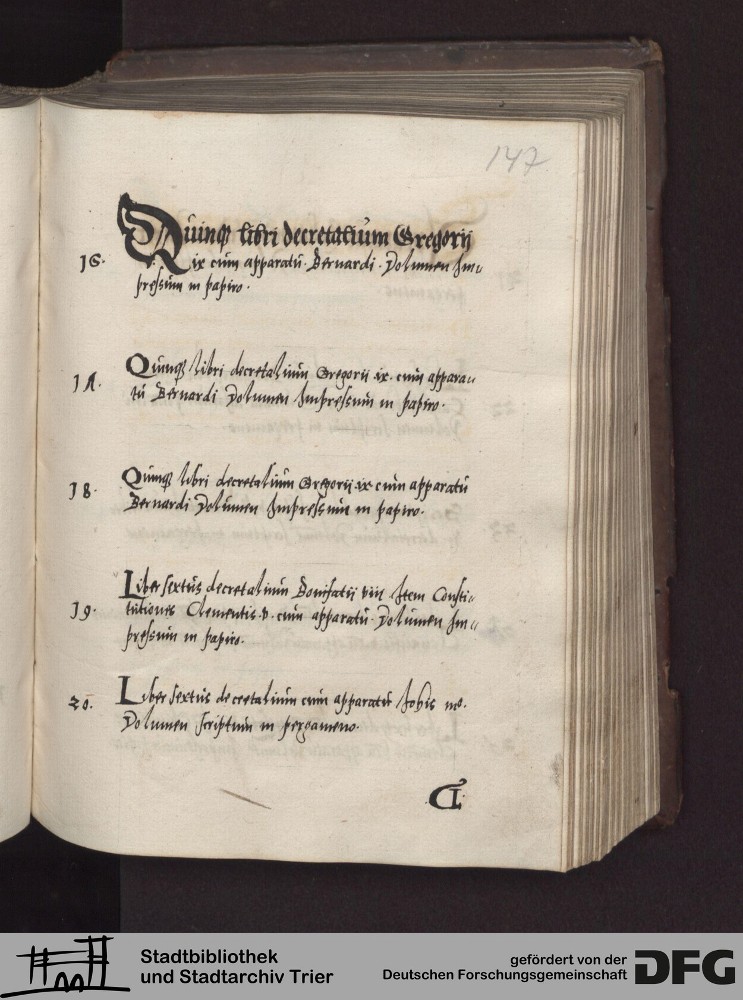 147
Quinqꝫ libri decretalium Gregorij
16. ix cum apparatu. Bernardi. Volumen Im-
pressum in papiro.
17. Quinqꝫ libri decretalium Gregorii ix. cum appara-
tu Bernardi Volumen Impressum in papiro.
18. Quinqꝫ libri decretalium Gregorii ix cum apparatu
Bernardi Volumen Impressum in papiro.
Liber sextus decretalium Bonifatii viii. Item Consti-
19. tutiones Clementis. v. cum apparatu. Volumen Im-
pressum in papiro.
20. Liber sextus decretalium cum apparatu Johis mo.
Volumen scriptum in pergameno.
Stadtbibliothek
und Stadtarchiv Trier
gefördert von der
Deutschen Forschungsgemeinschaft
DFG